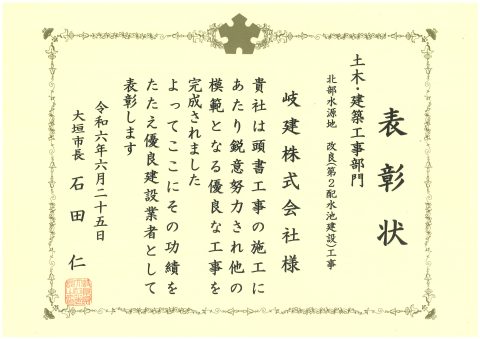 表彰状
土木・建築工事部門
北部水源地　改良(第2配水池建設)工事
岐建株式会社様
貴社は頭書工事の施工に
あたり鋭意努力され他の
模範となる優良な工事を
完成されました
よってここにその功績を
たたえ優良建設業者として
表彰します
令和六年六月二十五日
大垣市長　石田　仁